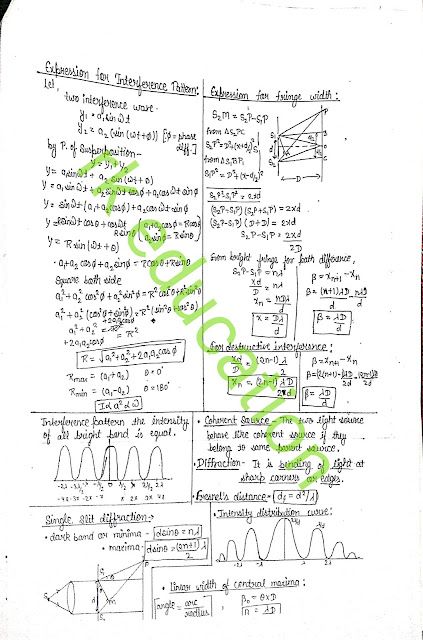 Expression for Interference Pattern:
Let,
two interference wave-
y₁ = a₁ sin ωt
y₂ = a₂ (sin (ωt+ϕ)) [ϕ = phase diff.]
by P. of Superposition-
y = y₁ + y₂
y = a₁ sin ωt + a₂ sin (ωt + ϕ)
y = a₁ sin ωt + a₂ sin ωt cosϕ + a₂ cos ωt sin ϕ
y = sin ωt (a₁ + a₂ cosϕ) + a₂ cos ωt sin ϕ
a₁ + a₂ cosϕ = R cosθ
a₂ sinϕ = R sinθ
y = R sin (ωt + θ)
a₁ + a₂ cosϕ + a₂ sinϕ = R cosθ + R sinθ
Square both side
R = √a₁² + a₂² + 2a₁a₂ cosϕ
Rmax = (a₁ + a₂) θ = 0°
Rmin = (a₁ - a₂) θ = 180°
I α a² α ω
Expression for fringe width:
S₂M = S₂P - S₁P
from Δ S₂PC
from Δ S₁BP,
S₂P² - S₁P² = 2xd
(S₂P - S₁P) (S₂P + S₁P) = 2xd
(S₂P - S₁P) (D + D) = 2xd
S₂P - S₁P = 2xd / 2D
From bright fringe for path difference,
S₂P - S₁P = nλ
xd / D = nλ
xn = nDλ / d
x = Dλ / d
β = xn+1 - xn
β = (n+1)λD / d - nλD / d
β = λD / d
For destructive interference:
xd / D = (2n-1) λ / 2
xn = (2n-1) λD / 2d
β = xn+1 - xn
β = λD / d
Interference pattern the intensity
of all bright band is equal.
• Coherent Source - The two light source
behave like coherent source if they
belong to same parent source.
• Diffraction - It is bending of light at
sharp corners or edges.
• Fresnel's distance - df = d²/λ
Single slit diffraction→
• dark band or minima - d sinθ = nλ
• maxima - d sinθ = (2n+1) λ / 2
• Intensity distribution curve:
-2λ -λ λ 2λ
• linear width of central maxima:
angle = arc / radius
β₀ = θ × D
rk education